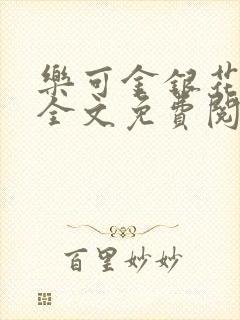 樂可金銀花
全文免費閱
百里妙妙